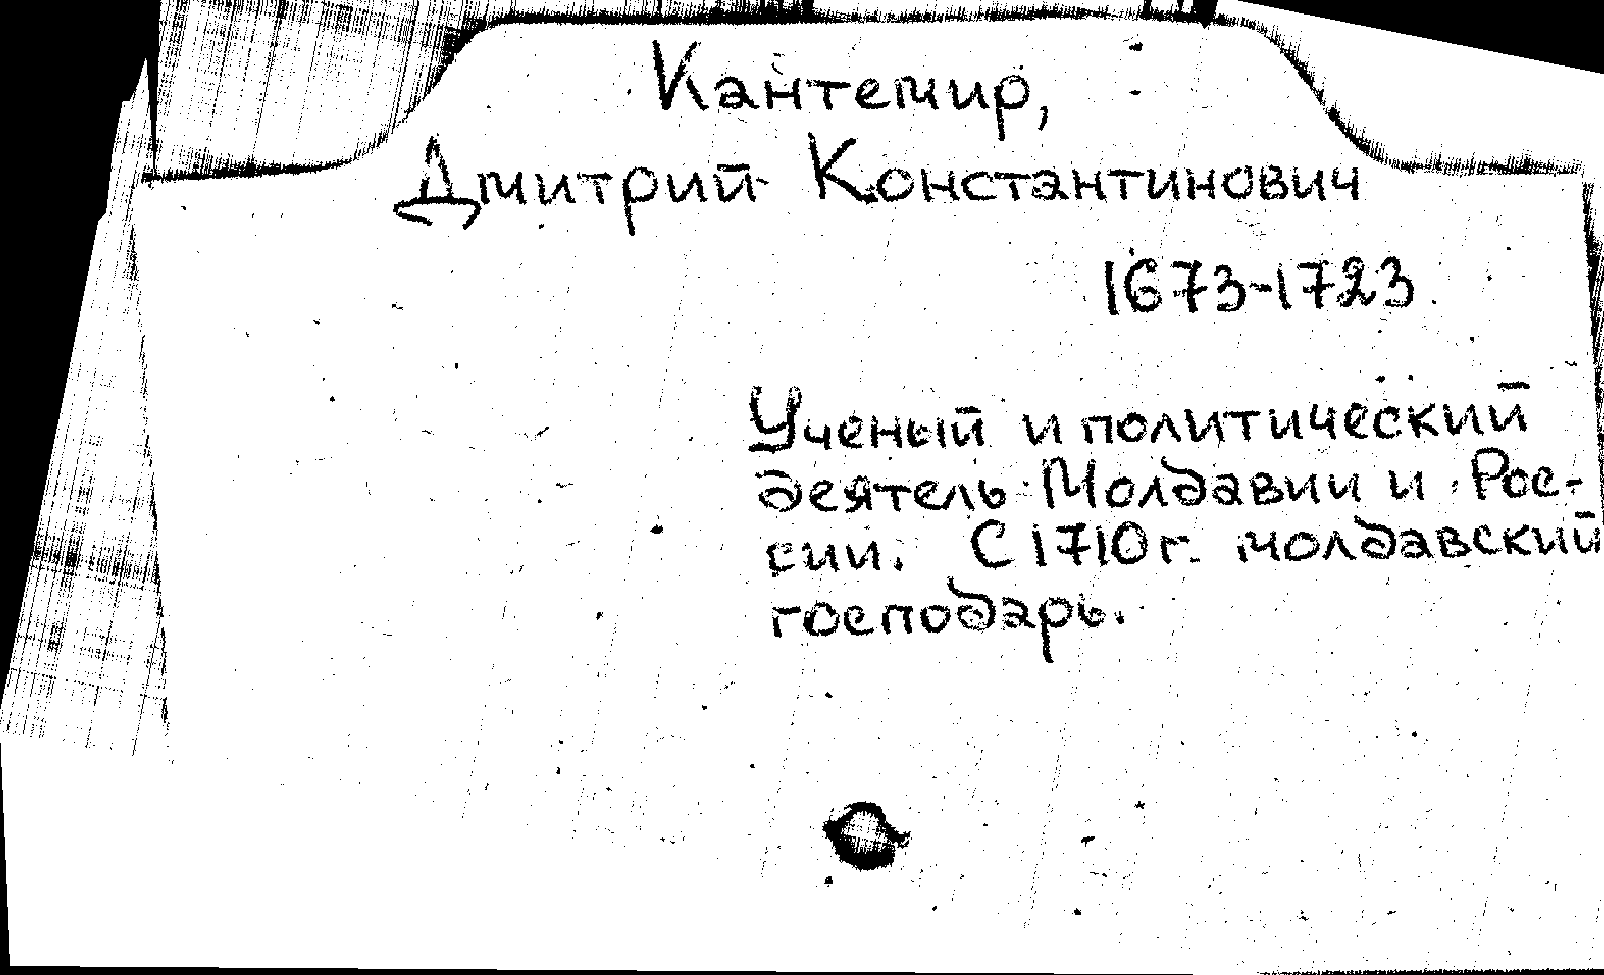 Кантемир,
Дмитрий Константинович
1673-1723
Ученый и политический
деятель Молдавии и Рос-
сии. С 1710 г. молдавский
господарь.